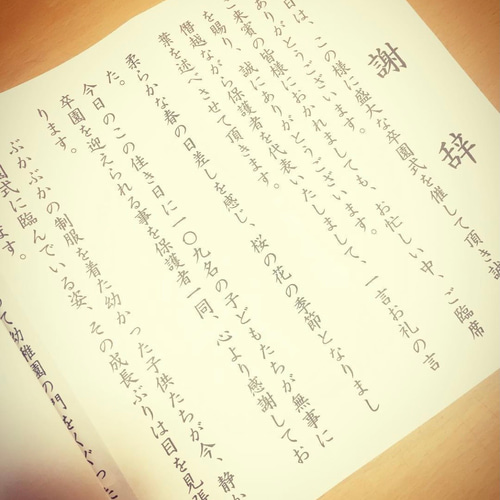 謝辞
日は、この様に盛大な卒園式を催して頂き誠
ありがとうございます。
ご来賓の皆様におかれましても、お忙しい中、ご臨席
を賜り、誠にありがとうございます。
僭越ながら保護者を代表いたしまして、一言お礼の言
葉を述べさせて頂きます。
柔らかな春の日差しを感じ、桜の花の季節となりまし
た。
今日のこの佳き日に一〇九名の子どもたちが無事に
卒園を迎えられる事を保護者一同、心より感謝してお
ります。
ぶかぶかの制服を着た幼かった子供たちが今、静か
園式に臨んでいる姿、その成長ぶりは目を見張
ます。
って幼稚園の門をくぐった